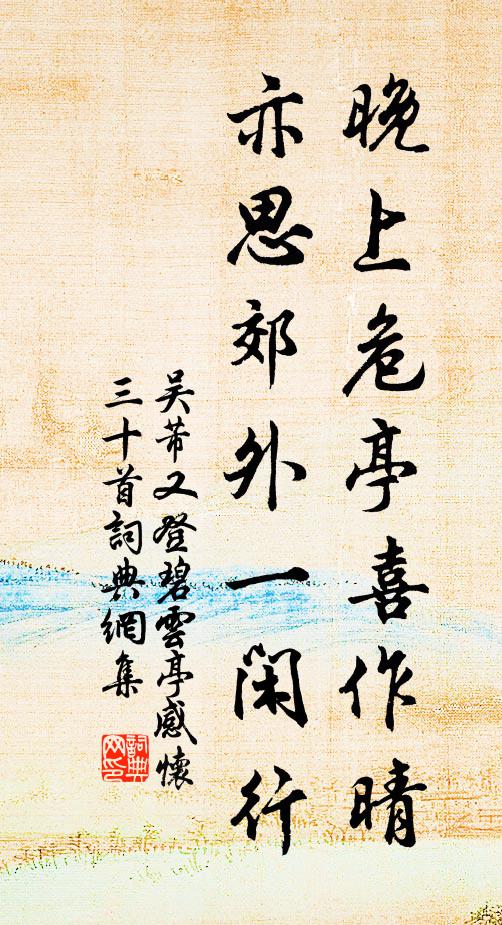 晚上危亭喜作晴
亦思郊外一闲行
吴芾又登碧雲亭感懷
三十首詞典網集
詞典
网印